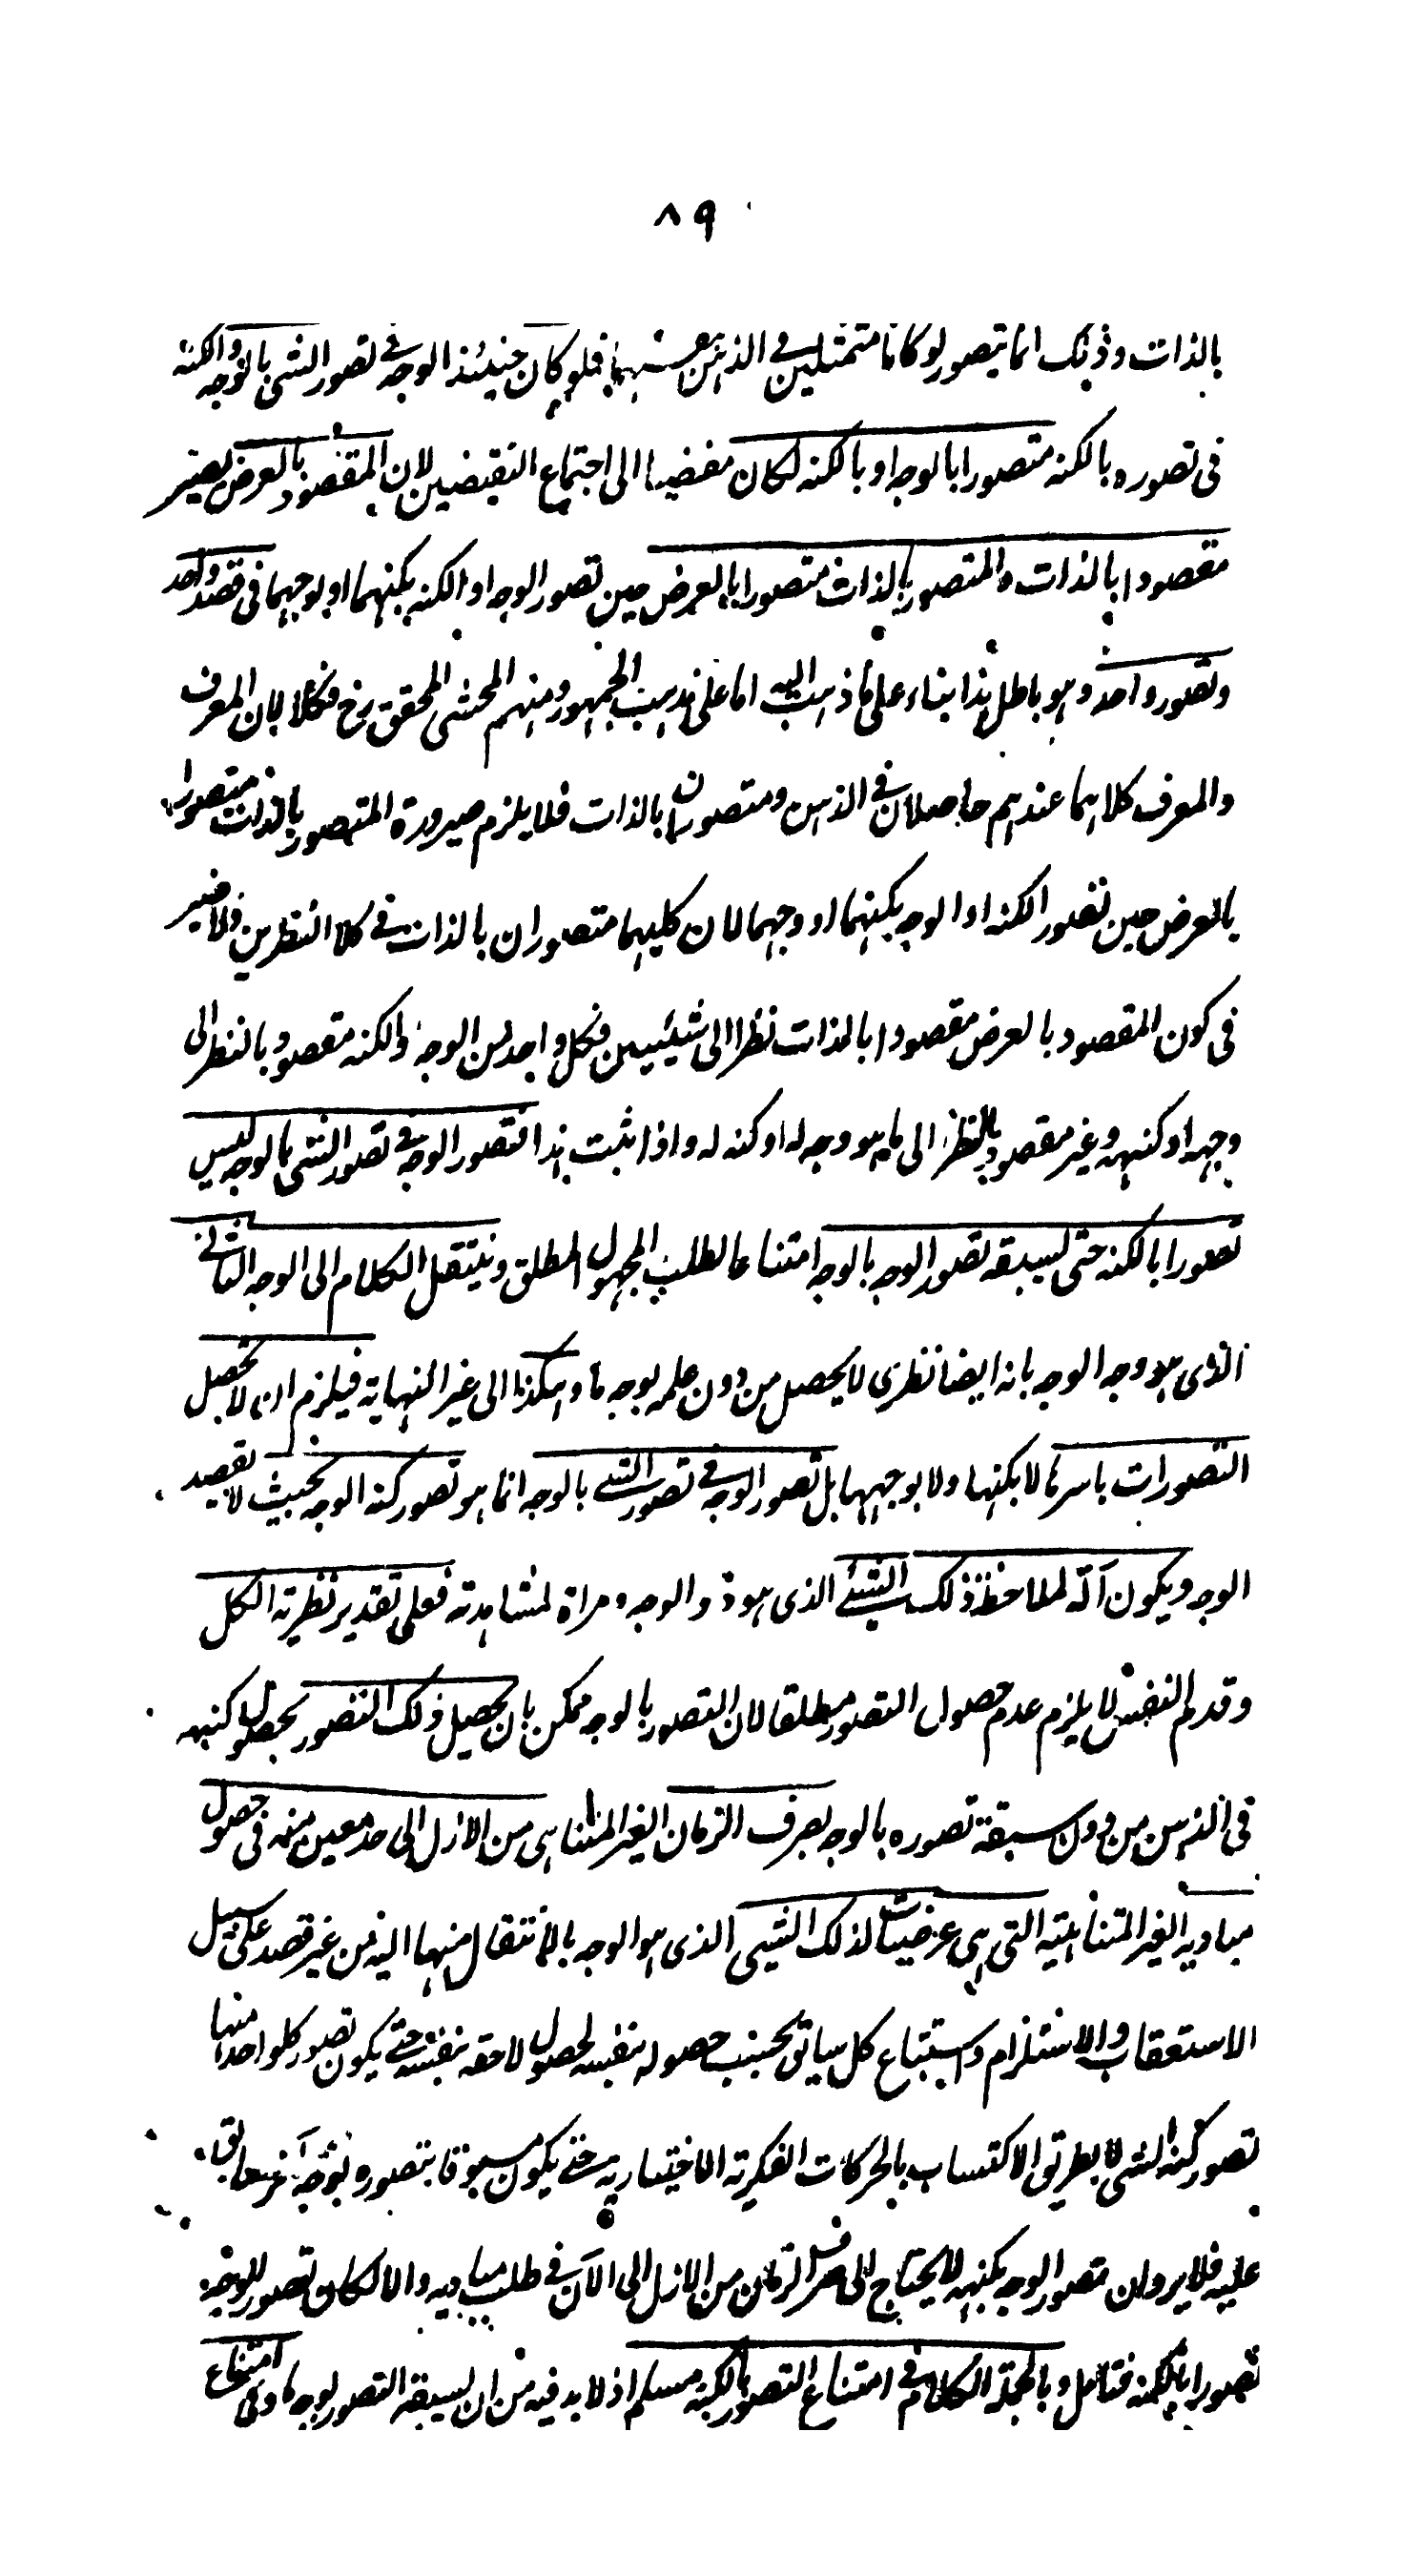 ٨٩
بالذات وذلك انما يتصور لو كانا متمثلين في الذهن بنفسهما فلو كان حينئذ الوجه في تصور الشئ بالوجه والكنه
في تصوره بالكنه متصورا بالوجه او بالكنه لكان مفضيا الى اجتماع النقيضين لان المقصود بالعرض يصير
مقصودا بالذات والمتصور بالذات متصورا بالعرض حين تصور الوجه او الكنه بكنههما او بوجههما في قصد واحد
وتصور واحد وهو باطل هذا بناء على ما ذهب اليه اما على مذهب الجمهور ومنهم المحشى المحقق رح فكلا لان المعرف
والمعرف كلاهما عندهم حاصلان في الذهن ومتصوران بالذات فلا يلزم صيرورة المتصور بالذات متصورا
بالعرض حين تصور الكنه او الوجه بكنههما او وجههما لان كليهما متصوران بالذات في كلا النظرين ولا ضير
في كون المقصود بالعرض مقصودا بالذات نظرا الى شيئيين فكل واحد من الوجه والكنه مقصود بالنظر الى
وجهه او كنهه وغير مقصود بالنظر الى ما هو وجه له او كنه له واذا ثبت هذا فتصور الوجه في تصور الشئ بالوجه ليس
تصورا بالكنه حتى يسبقه تصور الوجه بالوجه امتناعا لطلب المجهول المطلق وينتقل الكلام الى الوجه الثاني
الذى هو وجه الوجه بانه ايضا نظرى لا يحصل من دون علمه بوجه ما وهكذا الى غير النهاية فيلزم ان لا تحصل
التصورات باسرها لا بكنهها ولا بوجهها بل تصور الوجه في تصور الشئ بالوجه انما هو تصور كنه الوجه بحيث لا يقصد
الوجه ويكون آلة لملاحظة ذلك الشئ الذى هو ذو الوجه ومراة لمشاهدته فعلى تقدير نظرية الكل
وقدم النفس لا يلزم عدم حصول التصور مطلقا لان التصور بالوجه ممكن بان يحصل ذلك التصور بحصول كنهه
في الذهن من دون سبقة تصوره بالوجه بصرف الزمان الغير المتناهى من الازل الى حد معين منه في حصول
مباديه الغير المتناهية التى هى عرضيات لذلك الشيى الذى هو الوجه بالانتقال منها اليه من غير قصد على سبيل
الاستعقاب والاستلزام واستتباع كل سابق بحسب حصوله بنفسه لحصول لاحقه بنفسه حتى يكون تصور كلواحد منها
تصور كنه الشى لا بطريق الاكتساب بالحركات الفكرية الاختيارية حتى يكون مسبوقا بتصوره بوجه آخر سابق
عليه فلا يرد ان تصور الوجه بكنهه لا يحتاج الى صرف الزمان من الازل الى الآن في طلب مباديه والا لكان تصور الوجه
تصورا بالكنه فتامل وبالجملة الكلام في امتناع التصور بالكنه مسلم اذ لا بد فيه من ان يسبقه التصور بوجه ما وفى امتناع